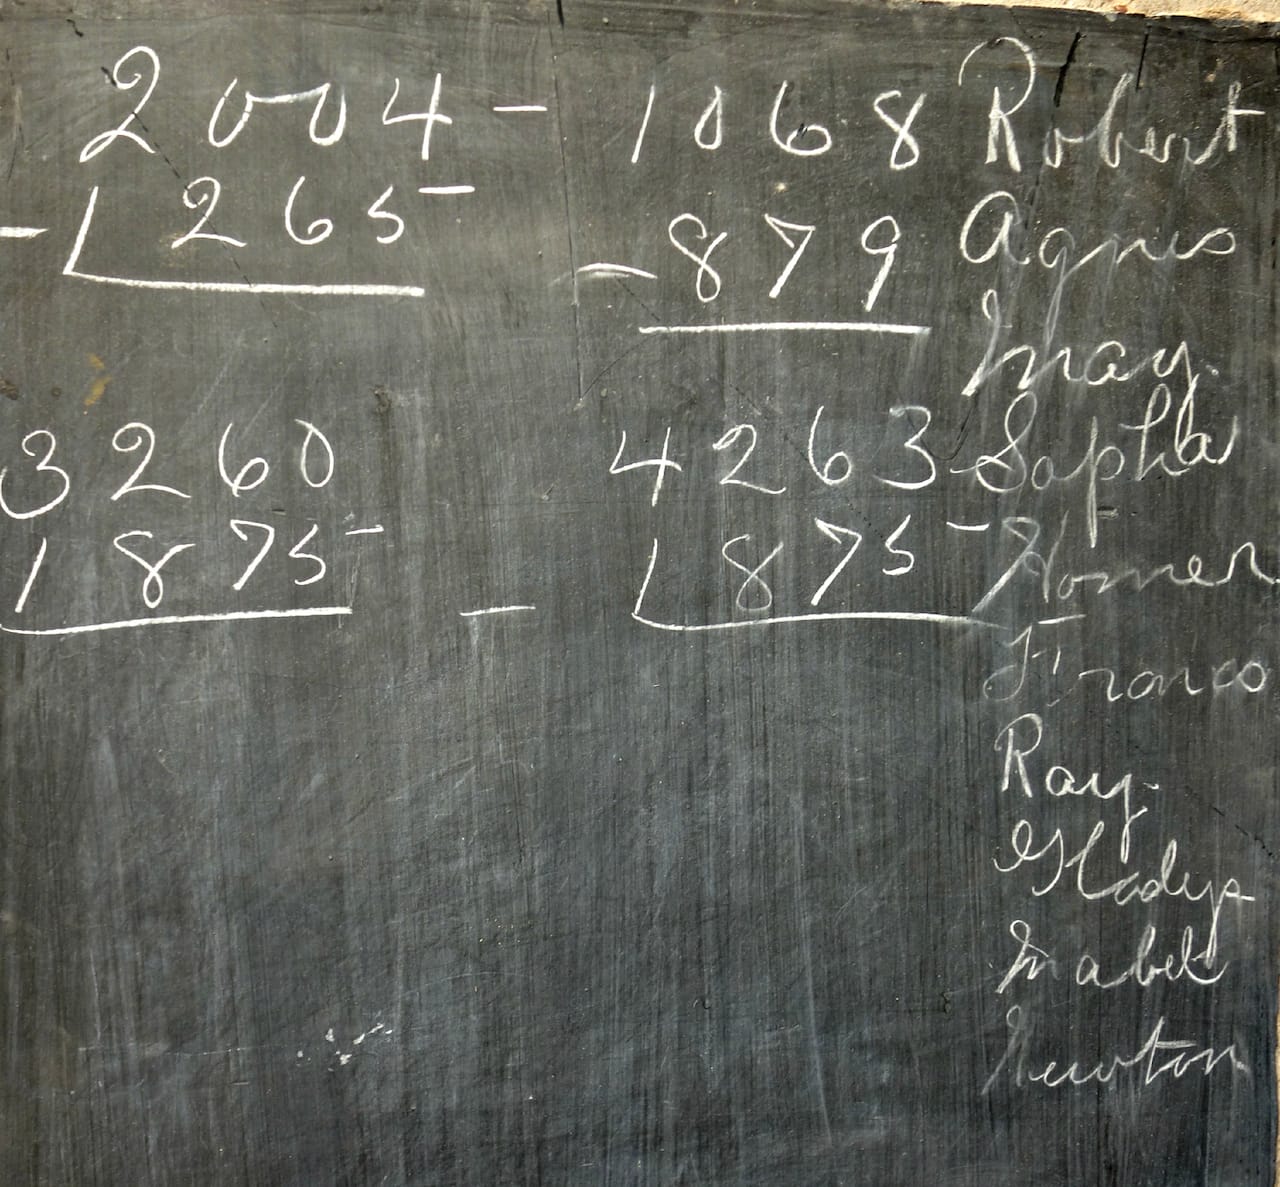 2004 -
- 1265
1068
- 879
3260
1875
4263
- 1875
Robert
Agnes
May.
Sopha
Homer
Ray.
Gladys
Mabel
Newton